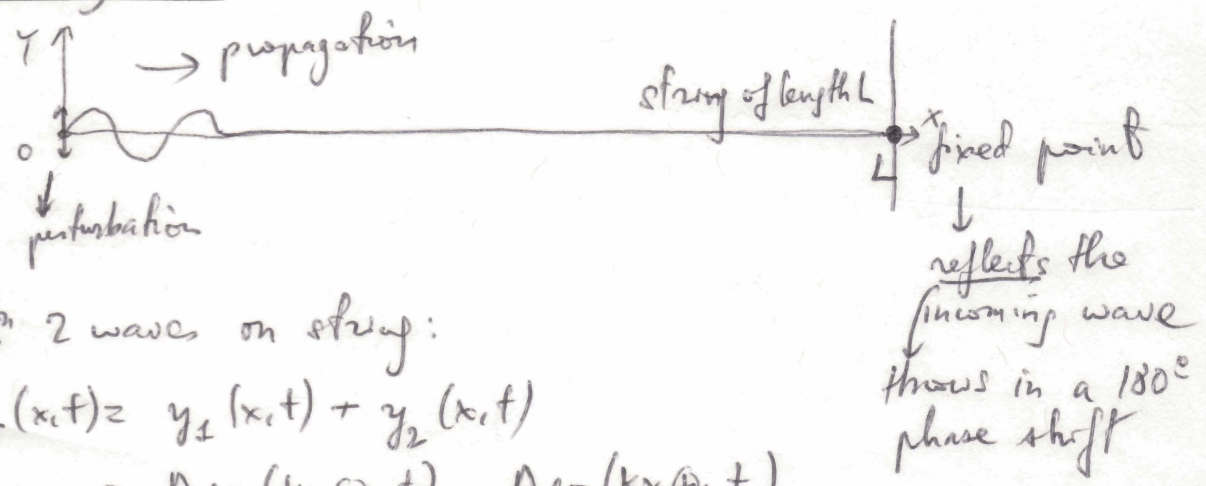 Y
→ propagation
string of length L
x
0
L
fixed point
perturbation
reflects the
incoming wave
throws in a 180°
phase shift
2 waves on string:
(x,t) = y₁ (x,t) + y₂ (x,t)